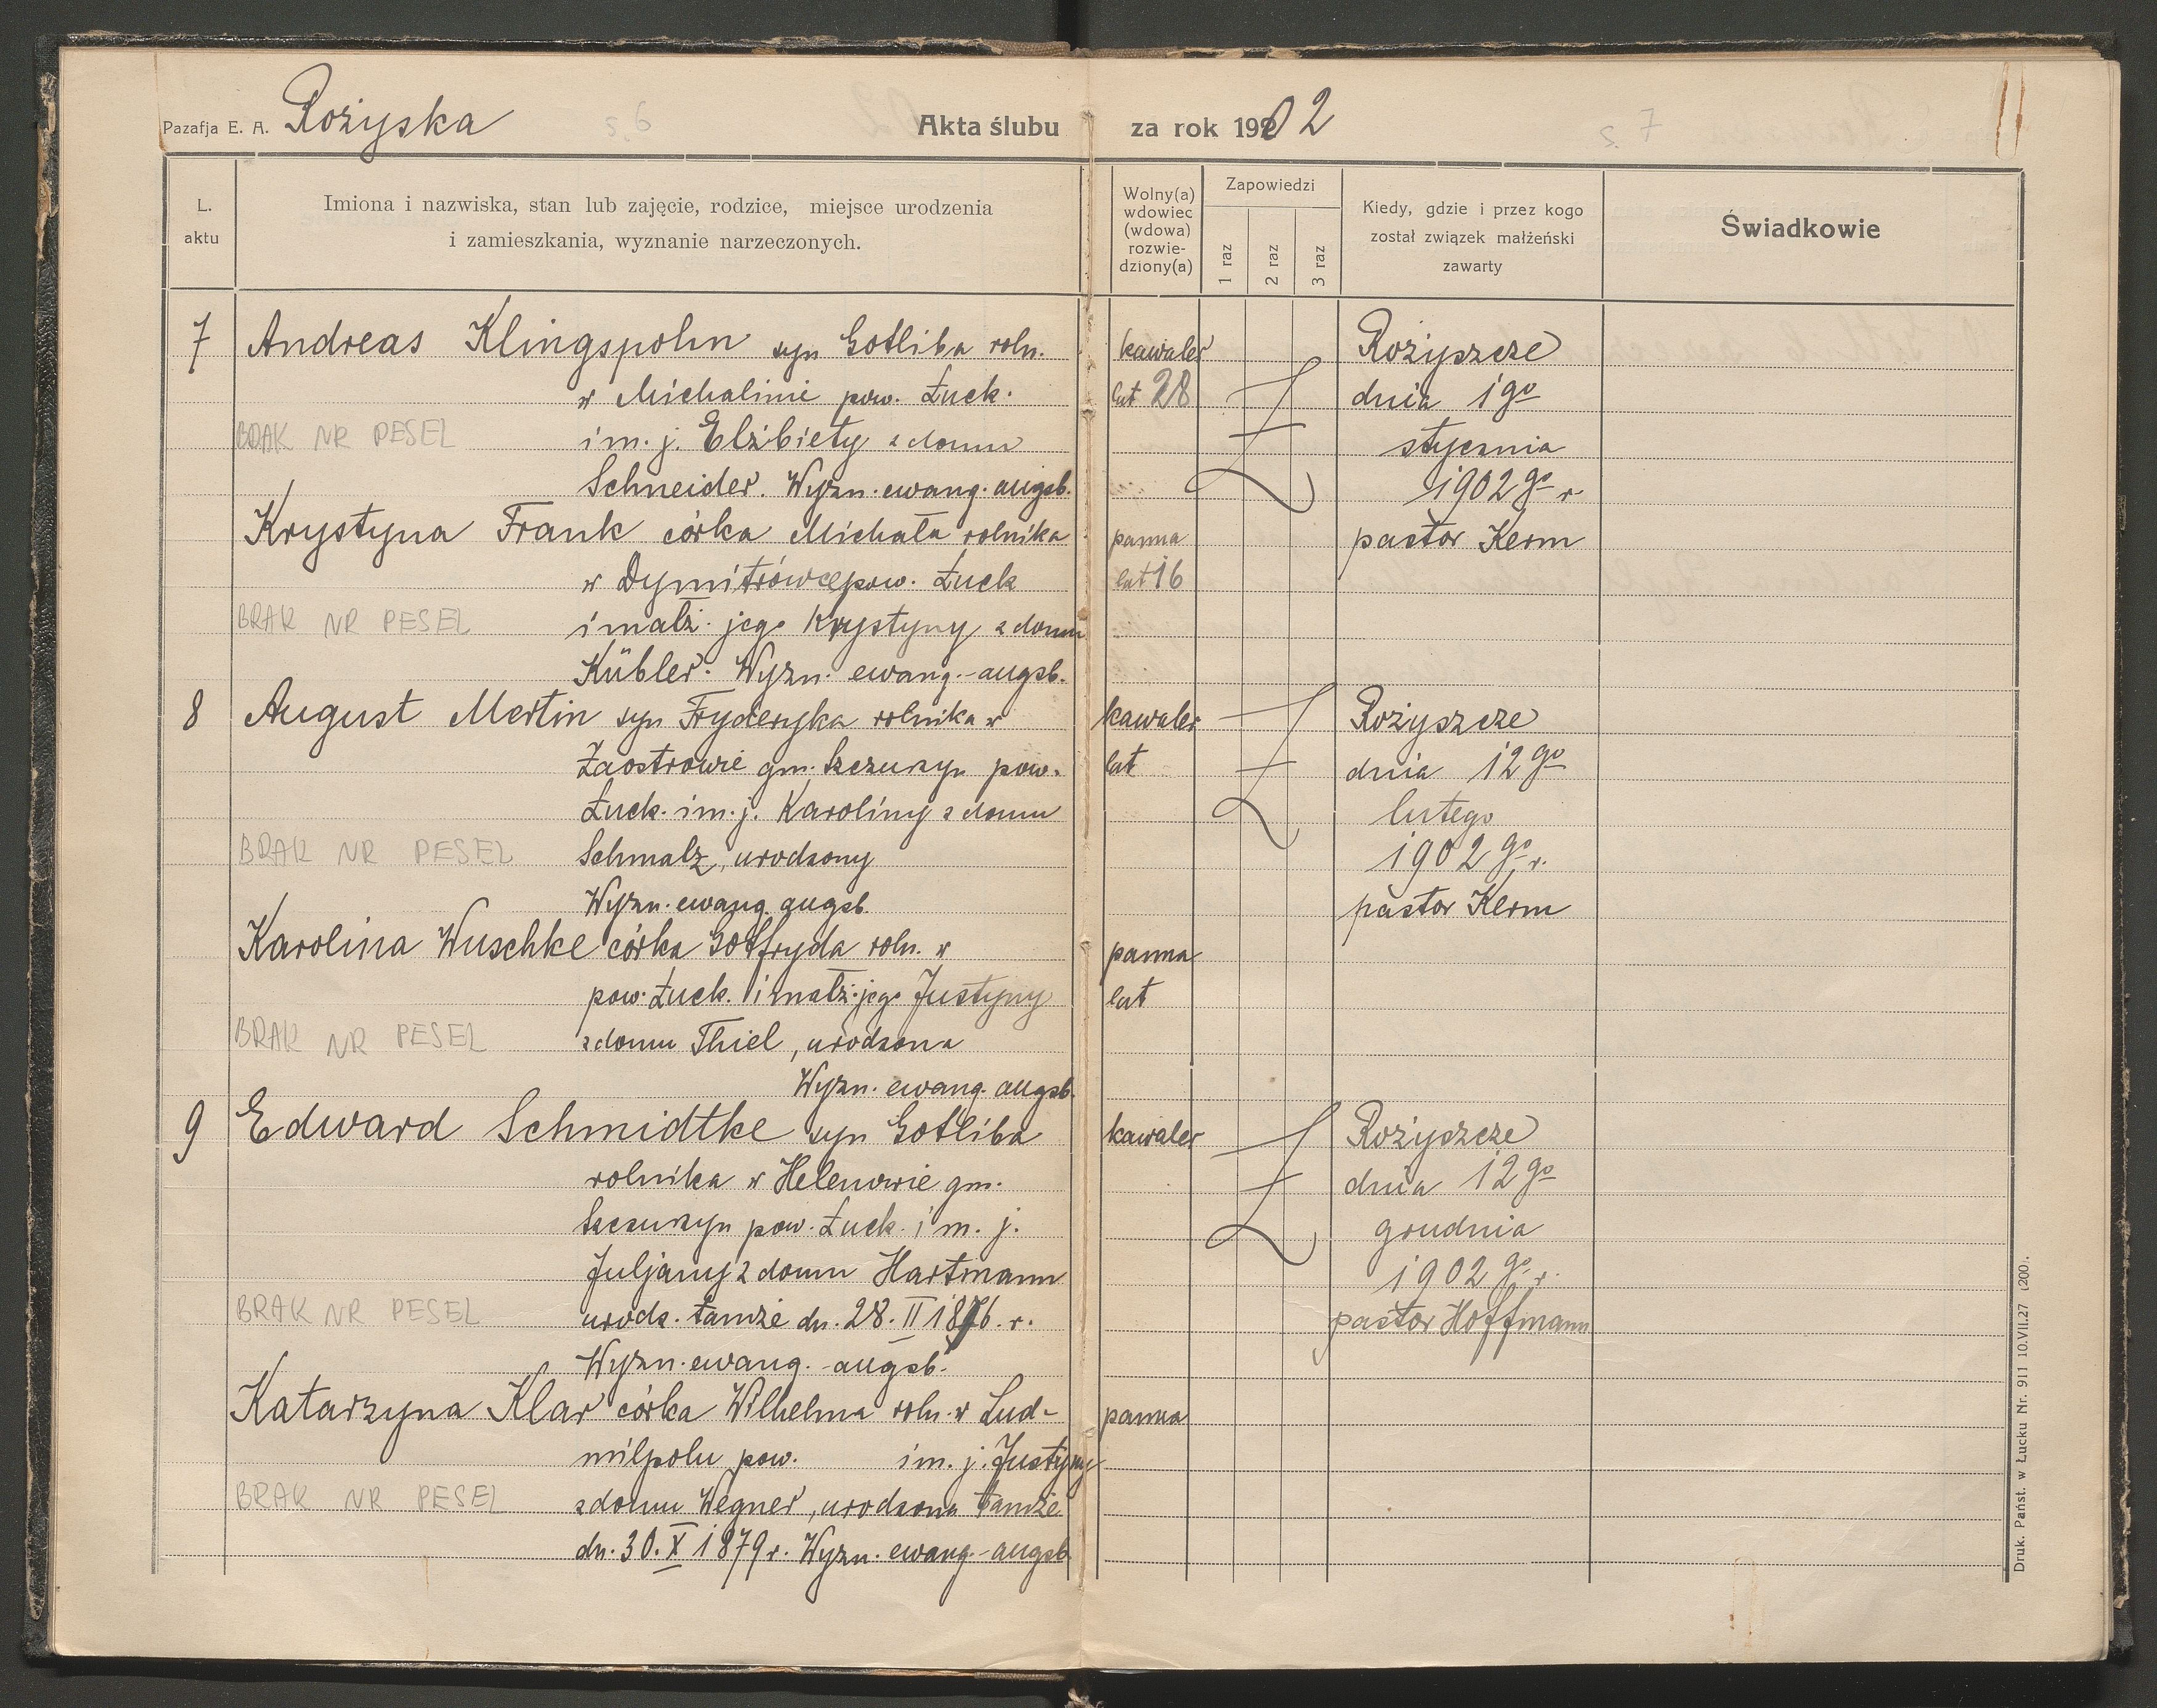 Pazafja E. A. Rożyska s. 6 Akta ślubu za rok 1902 s. 7
L. aktu
Imiona i nazwiska, stan lub zajęcie, rodzice, miejsce urodzenia
i zamieszkania, wyznanie narzeczonych.
Wolny(a)
wdowiec
(wdowa)
rozwie-
dziony(a)
Zapowiedzi
1 raz
2 raz
3 raz
Kiedy, gdzie i przez kogo
został związek małżeński
zawarty
Świadkowie
7 Andreas Klingspohn syn Gotliba roln. kawaler Rożyszcze
w Michalinie pow. Łuck. lat 28 dnia 1go
BRAK NR PESEL i m. j. Elżbiety z domu stycznia
Schneider. Wyzn. ewang. augsb. 1902 go r.
Krystyna Frank córka Michała rolnika panna pastor Kerm
w Dymitrówce pow. Łuck lat 16
BRAK NR PESEL i małż. jego Krystyny z domu
Kübler. Wyzn. ewang.-augsb.
8 August Mertin syn Fryderyka rolnika w kawaler Rożyszcze
Zaostrowie gm. Szczurzyn pow. lat dnia 12 go
Łuck. i m. j. Karoliny z domu lutego
BRAK NR PESEL Schmalz, urodzony 1902 go r.
Wyzn. ewang. augsb. pastor Kerm
Karolina Wuschke córka Gotfryda roln. w panna
pow. Łuck. i małż. jego Justyny lat
BRAK NR PESEL z domu Thiel, urodzona
Wyzn. ewang. augsb.
9 Edward Schmidtke syn Gotliba kawaler Rożyszcze
rolnika w Helenowie gm. dnia 12 go
Szczurzyn pow. Łuck. i m. j. grudnia
Juljanny z domu Hartmann 1902 go r.
BRAK NR PESEL urodz. tamże dn. 28. II 1876. r. pastor Hoffmann
Wyzn. ewang. -augsb.
Katarzyna Klar córka Wilhelma roln. w Lud- panna
milpolu pow. i m. j. Justyny
BRAK NR PESEL z domu Wegner, urodzona tamże
dn. 30. X 1879 r. Wyzn. ewang.-augsb.
Druk. Państ. w Łucku Nr. 911 10.VII.27 1200.